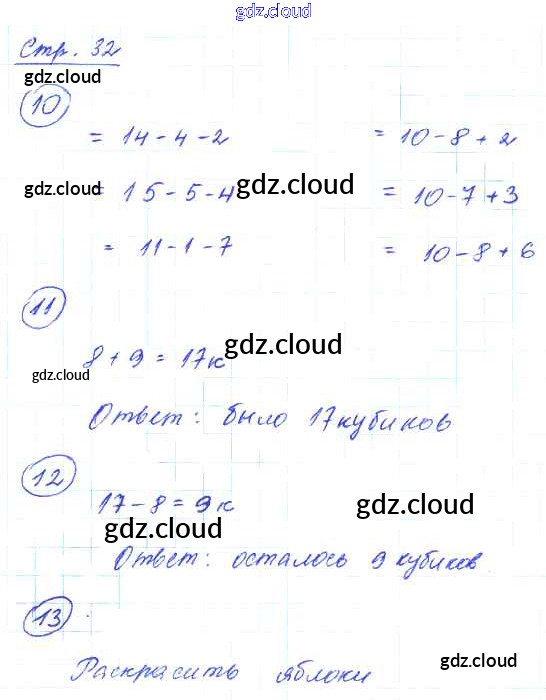 gdz.cloud
Стр. 32
gdz.cloud
10
= 14-4-2 = 10-8+2
gdz.cloud = 15-5-4 gdz.cloud = 10-7+3
= 11-1-7 = 10-8+6
11
8+9=17к gdz.cloud
gdz.cloud
Ответ: было 17 кубиков
12
17-8=9к gdz.cloud
gdz.cloud
Ответ: осталось 9 кубиков
13
Раскрасить яблоки gdz.cloud